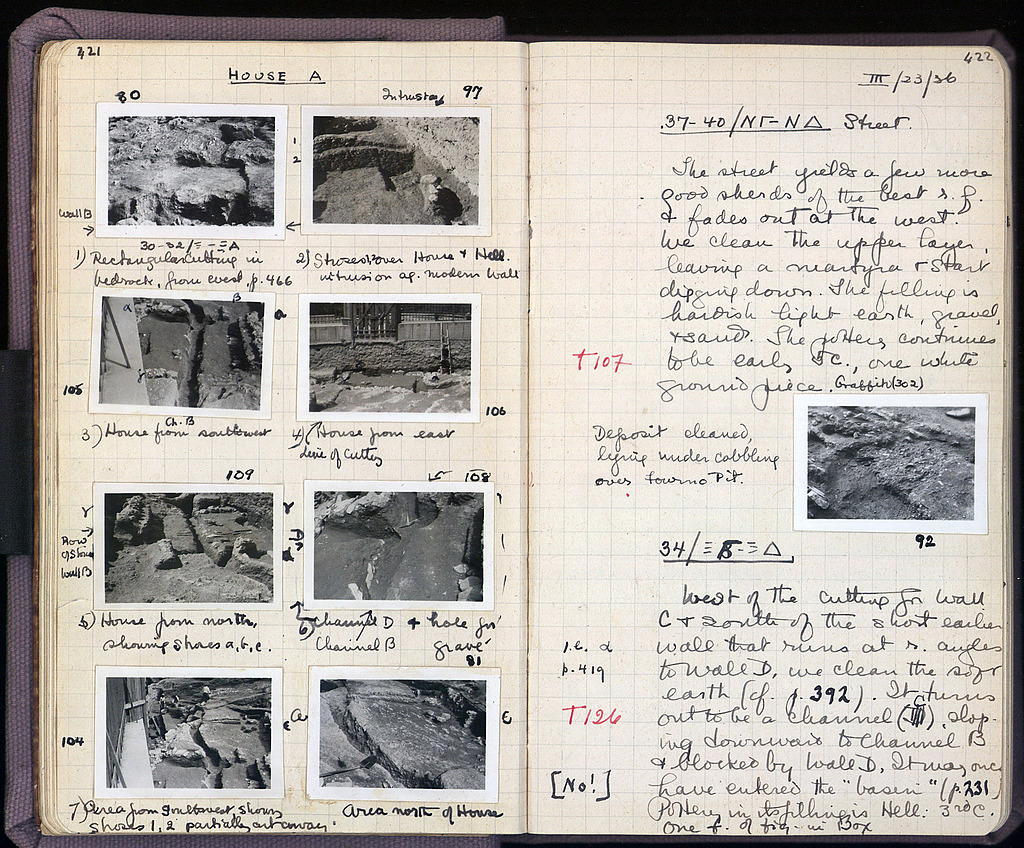 421
HOUSE A
80
Intrusion 97
1
2
Wall B
30-32/Ξ-ΞΔ
1) Rectangular cutting in
bedrock, from west, p. 466
2) Stroses over House & Hell.
intrusion ag. modern wall
α
β
a
105
Ch. B
106
3) House from southwest
4) House from east
Line of cutting
109
108
γ
Row
of Stones
Wall B
γ
D
5) House from north,
showing stroses a, b, c.
6) Channel D & hole for
Channel B grave
81
104
7) Area from southwest showing
stroses 1, 2 partially cut away.
Area north of House
422
III/23/36
37-40/ΝΓ-ΝΔ Street.
The street yields a few more
good sherds of the best r.f.
& fades out at the west.
We clean the upper layer,
leaving a martyra & start
digging down. The filling is
hardish light earth, gravel,
& sand. The pottery continues
T107
to be early 5 C., one white
ground piece. Graffito (302)
Deposit cleaned,
lying under cobbling
over Pit.
92
34/Ξ Γ-ΞΔ
West of the cutting for Wall
C & South of the short earlier
i.e. α
p. 419
wall that runs at r. angles
to wall D, we clean the soft
earth (cf. p. 392). It turns
T126
out to be a channel (III) slop-
ing downward to Channel B
& blocked by Wall D. It may once
[No!]
have entered the "basin" (p. 231)
Pottery in its filling is Hell. 3rd C.
One f. of fig. in Box